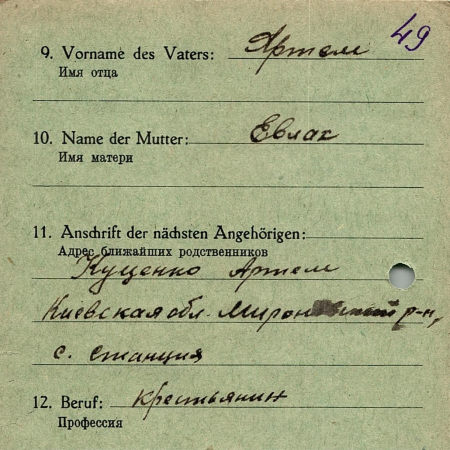 49
9. Vorname des Vaters: Артем
Имя отца
10. Name der Mutter: Евлак
Имя матери
11. Anschrift der nächsten Angehörigen:
Адрес ближайших родственников
Куценко Артем
Киевская обл. р-н,
с. Станция
12. Beruf: крестьянин
Профессия